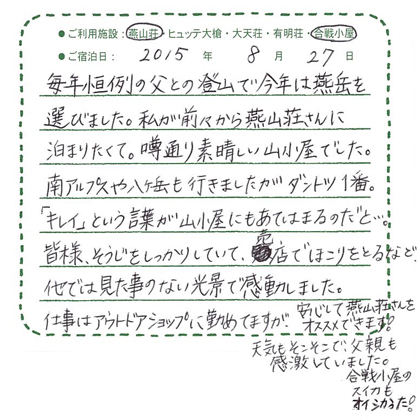 ●ご利用施設：燕山荘・ヒュッテ大槍・大天荘・有明荘・合戦小屋
●ご宿泊日：2015年 8月 27日
毎年恒例の父との登山で今年は燕岳を
選びました。私が前々から燕山荘さんに
泊まりたくて。噂通り素晴しい山小屋でした。
南アルプスや八ヶ岳も行きましたがダントツ1番。
「キレイ」という言葉が山小屋にもあてはまるのだと…。
皆様、そうじをしっかりしていて、売店でほこりをとるなど、
他では見た事のない光景で感動しました。
仕事はアウトドアショップに勤めてますが、安心して燕山荘さんを
オススメできます！
天気もそこそこで、父親も
感激していました。
合戦小屋の
スイカも
オイシカった！